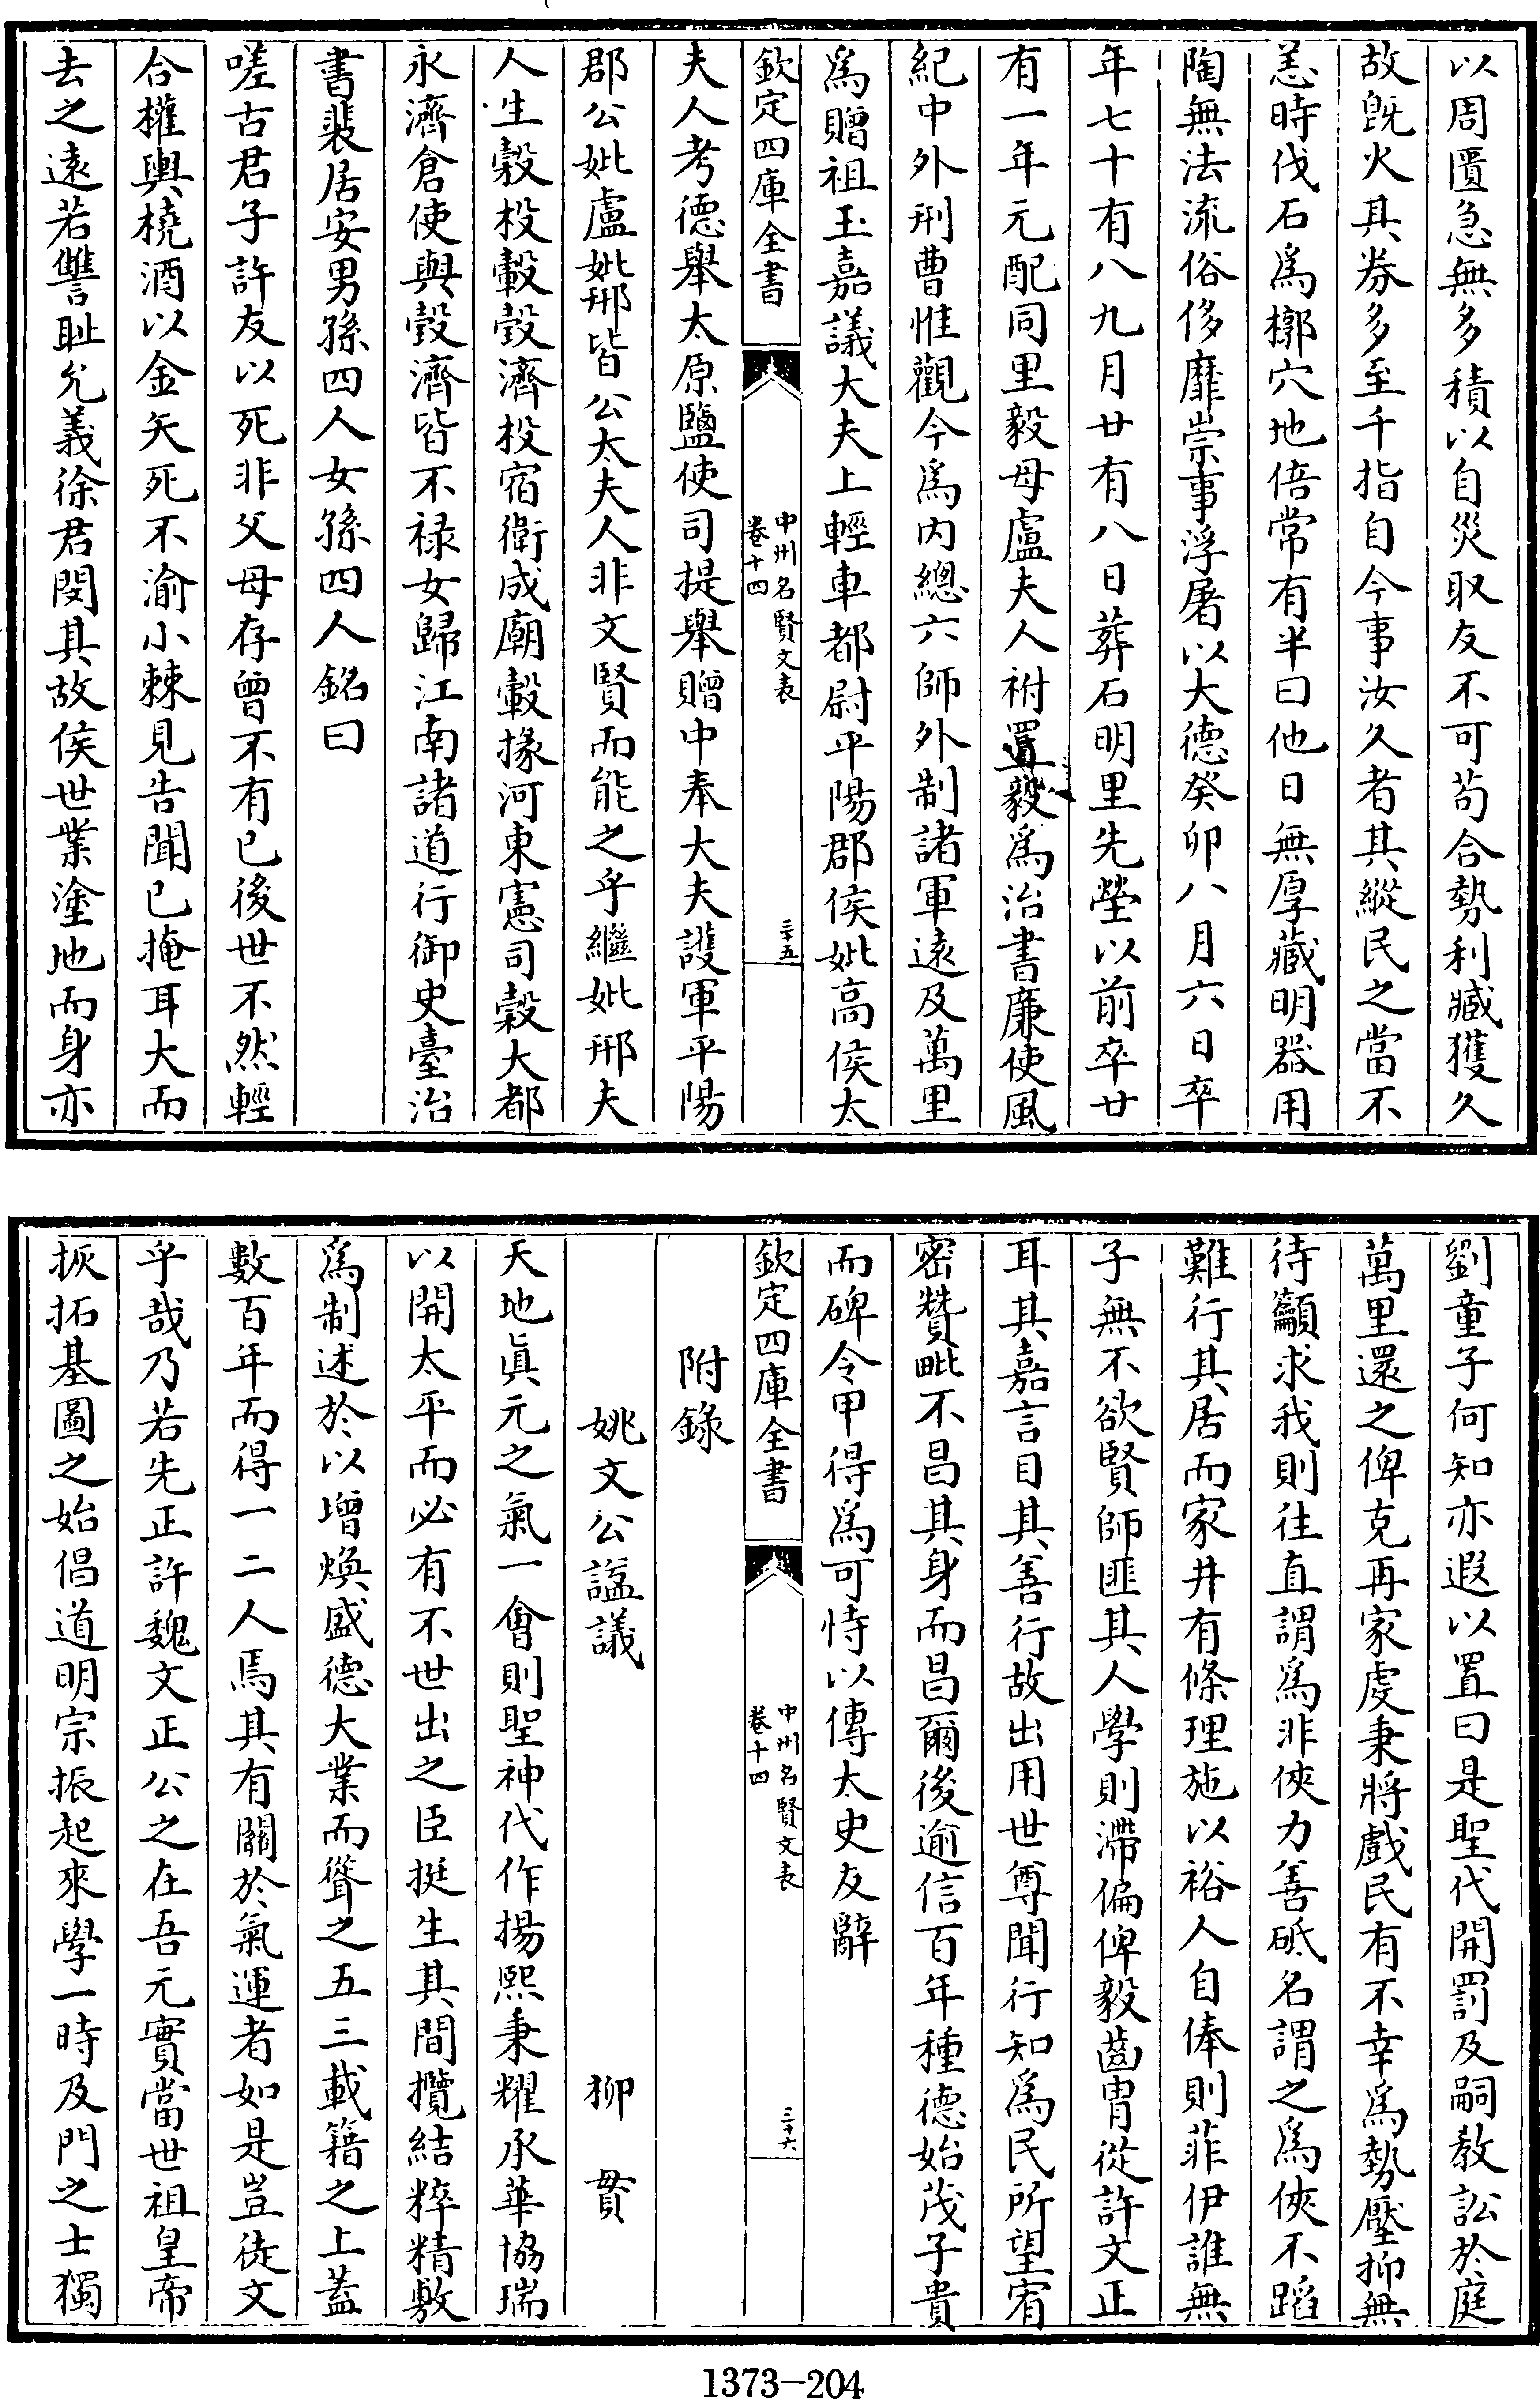 以周匱急無多積以自災取友不可苟合勢利臧獲久
故旣火其券多至千指自今事汝久者其縱民之當不
恙時伐石爲槨穴地倍常有半曰他日無厚藏明器用
陶無法流俗侈靡崇事浮屠以大德癸卯八月六日卒
年七十有八九月廿有八日葬石明里先塋以前卒廿
有一年元配同里毅母盧夫人祔置毅爲治書廉使風
紀中外刑曹惟觀今爲内總六師外制諸軍遠及萬里
爲贈祖玉嘉議大夫上輕車都尉平陽郡侯妣高侯太
欽定四庫全書
中州名賢文表
卷十四
三十五
夫人考德舉太原鹽使司提舉贈中奉大夫護軍平陽
郡公妣盧妣邢皆公太夫人非文賢而能之乎繼妣邢夫
人生穀杸轂㲄濟杸宿衛成廟轂掾河東憲司穀大都
永濟倉使與㲄濟皆不禄女歸江南諸道行御史臺治
書裴居安男孫四人女孫四人銘曰
嗟古君子許友以死非父母存曾不有已後世不然輕
合權輿橈酒以金矢死不渝小棘見告聞已掩耳大而
去之遠若讐恥允義徐君閔其故侯世業塗地而身亦
劉童子何知亦遐以置曰是聖代開罰及嗣教訟於庭
萬里還之俾克再家虔秉將戲民有不幸爲勢壓抑無
待籲求我則往直謂爲非俠力善砥名謂之爲俠不蹈
難行其居而家井有條理施以裕人自俸則菲伊誰無
子無不欲賢師匪其人學則滯偏俾毅齒冑從許文正
耳其嘉言目其善行故出用世尊聞行知爲民所望宥
密贊毗不昌其身而昌爾後逾信百年種德始茂子貴
而碑令甲得爲可恃以傳太史友辭
欽定四庫全書
中州名賢文表
卷十四
三十六
附錄
姚文公諡議 柳貫
天地眞元之氣一會則聖神代作揚熙秉耀承華協瑞
以開太平而必有不世出之臣挺生其間攬結粹精敷
爲制述於以增煥盛德大業而聳之五三載籍之上蓋
數百年而得一二人焉其有關於氣運者如是豈徒文
乎哉乃若先正許魏文正公之在吾元實當世祖皇帝
恢拓基圖之始倡道明宗振起來學一時及門之士獨
1373-204